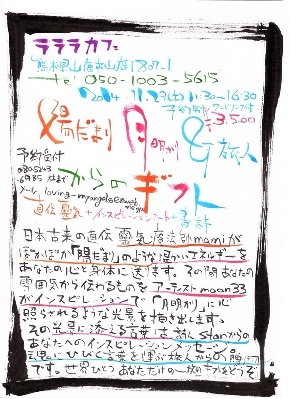 ラララカフェ
熊本県山鹿市山鹿1807-1
tel 050-1003-5615
2014.11.29(土) 11:30~16:30
予約制
¥3,500
陽だまり 月明かり & 旅人
からのギフト
予約受付
080-5243
-6985 はまで
メール loving-myangel@ezweb.
直伝靈氣+インスピレーションアート+言詩
日本古来の直伝 靈氣療法師mamiが
ぽかぽか「陽だまり」のような温かいエネルギーを
あなたの心と身体に送ります。その間あなたの
雰囲気から伝わるものをアーティストmoon33
がインスピレーションで「月明かり」に
照らされるような光景を描き出します。
その光景に添える言葉を旅人stanからの
あなたへのインスピレーションメッセージ。
魂にひびく言葉を運ぶ旅人からの
です。世界にひとつあなただけの をどうぞ